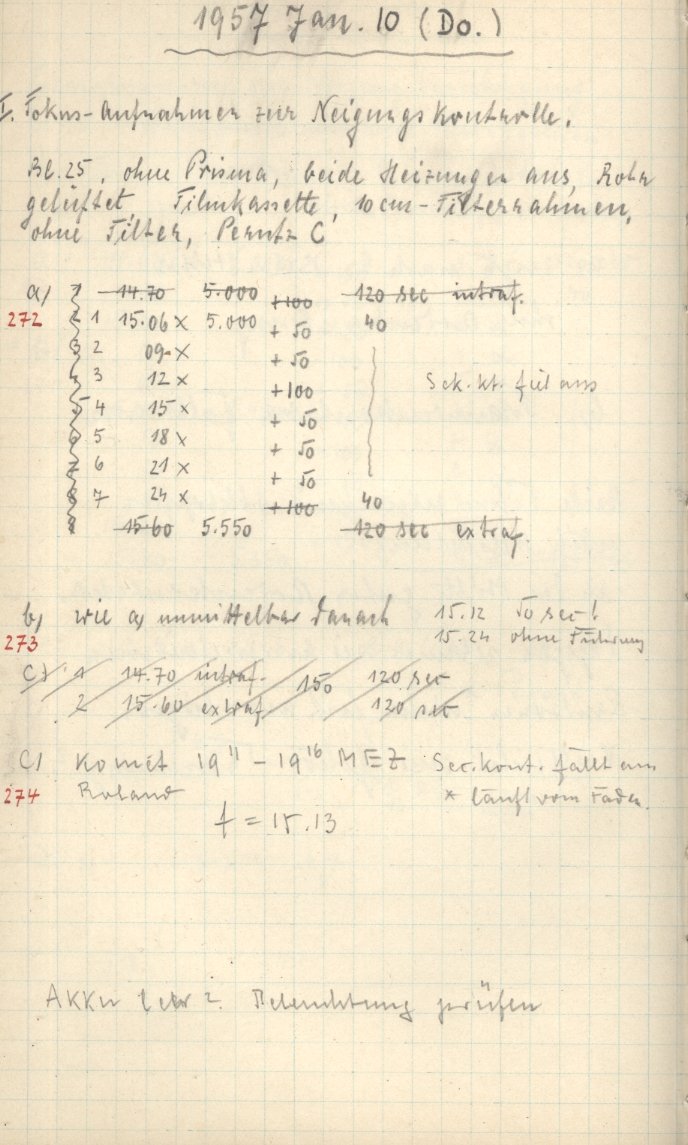 1957 Jan. 10 (Do.)
I. Fokus-Aufnahmen zur Neigungskontrolle.
Bl. 25, ohne Prisma, beide Heizungen aus, Rohr
gelüftet, Filmkassette, 10 cm-Filterrahmen,
ohne Filter, Perutz C
a) 1 14.70 5.000 +100 120 sec intraf.
272 2 1 15.06 x 5.000 + 50 40
3 2 09 x + 50
4 3 12 x +100 Sek. kt. fiel aus
5 4 15 x + 50
6 5 18 x + 50
7 6 21 x + 50
8 7 24 x +100 40
9 15.60 5.550 120 sec extraf.
b) wie a) unmittelbar danach 15.12 50 sec!
273 15.24 ohne Führung
c) 1 14.70 intraf. 150 120 sec
2 15.60 extraf 120 sec
c) Komet 19 11 – 19 16 MEZ Sec. kont. fällt aus
274 Roland * läuft vom Faden.
f = 15.13
Akku leer? Beleuchtung prüfen